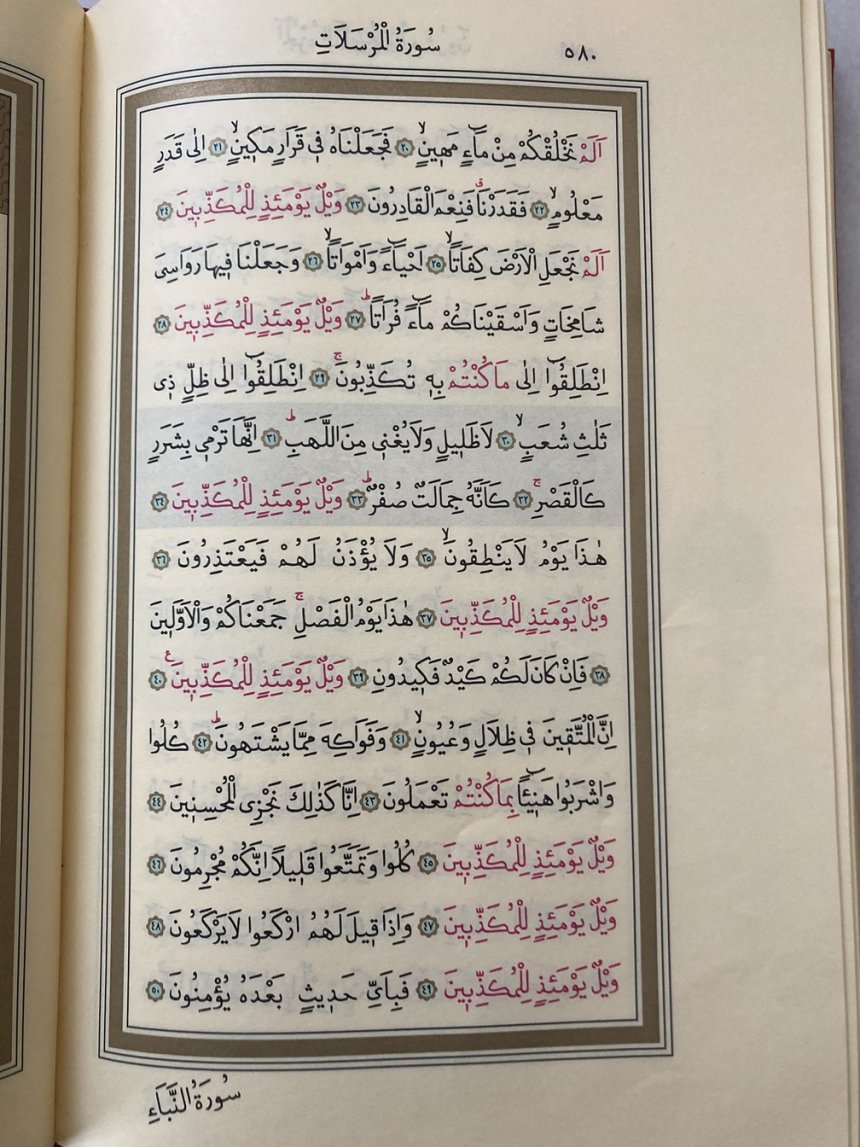 سُورَةُ الْمُرْسَلَاتِ ٥٨٠
اَلَمْ نَخْلُقْكُمْ مِنْ مَٓاءٍ مَه۪ينٍۙ ﴿٢٠﴾ فَجَعَلْنَاهُ ف۪ي قَرَارٍ مَك۪ينٍۙ ﴿٢١﴾ اِلٰى قَدَرٍ
مَعْلُومٍۙ ﴿٢٢﴾ فَقَدَرْنَاۗ فَنِعْمَ الْقَادِرُونَ ﴿٢٣﴾ وَيْلٌ يَوْمَئِذٍ لِلْمُكَذِّب۪ينَ ﴿٢٤﴾
اَلَمْ نَجْعَلِ الْاَرْضَ كِفَاتاًۙ ﴿٢٥﴾ اَحْيَٓاءً وَاَمْوَاتاًۙ ﴿٢٦﴾ وَجَعَلْنَا ف۪يهَا رَوَاسِيَ
شَامِخَاتٍ وَاَسْقَيْنَاكُمْ مَٓاءً فُرَاتاًۜ ﴿٢٧﴾ وَيْلٌ يَوْمَئِذٍ لِلْمُكَذِّب۪ينَ ﴿٢٨﴾
اِنْطَلِقُٓوا اِلٰى مَا كُنْتُمْ بِه۪ تُكَذِّبُونَۚ ﴿٢٩﴾ اِنْطَلِقُٓوا اِلٰى ظِلٍّ ذ۪ي
ثَلٰثِ شُعَبٍۙ ﴿٣٠﴾ لَا ظَل۪يلٍ وَلَا يُغْن۪ي مِنَ اللَّهَبِۜ ﴿٣١﴾ اِنَّهَا تَرْم۪ي بِشَرَرٍ
كَالْقَصْرِۚ ﴿٣٢﴾ كَاَنَّهُ جِمَالَتٌ صُفْرٌۜ ﴿٣٣﴾ وَيْلٌ يَوْمَئِذٍ لِلْمُكَذِّب۪ينَ ﴿٣٤﴾
هٰذَا يَوْمُ لَا يَنْطِقُونَۙ ﴿٣٥﴾ وَلَا يُؤْذَنُ لَهُمْ فَيَعْتَذِرُونَ ﴿٣٦﴾
وَيْلٌ يَوْمَئِذٍ لِلْمُكَذِّب۪ينَ ﴿٣٧﴾ هٰذَا يَوْمُ الْفَصْلِۚ جَمَعْنَاكُمْ وَالْاَوَّل۪ينَ
﴿٣٨﴾ فَاِنْ كَانَ لَكُمْ كَيْدٌ فَك۪يدُونِ ﴿٣٩﴾ وَيْلٌ يَوْمَئِذٍ لِلْمُكَذِّب۪ينَ ع ﴿٤٠﴾
اِنَّ الْمُتَّق۪ينَ ف۪ي ظِلَالٍ وَعُيُونٍۙ ﴿٤١﴾ وَفَوَاكِهَ مِمَّا يَشْتَهُونَۜ ﴿٤٢﴾ كُلُوا
وَاشْرَبُوا هَن۪ٓيـٔاً بِمَا كُنْتُمْ تَعْمَلُونَ ﴿٤٣﴾ اِنَّا كَذٰلِكَ نَجْزِي الْمُحْسِن۪ينَ ﴿٤٤﴾
وَيْلٌ يَوْمَئِذٍ لِلْمُكَذِّب۪ينَ ﴿٤٥﴾ كُلُوا وَتَمَتَّعُوا قَل۪يلاً اِنَّكُمْ مُجْرِمُونَ ﴿٤٦﴾
وَيْلٌ يَوْمَئِذٍ لِلْمُكَذِّب۪ينَ ﴿٤٧﴾ وَاِذَا ق۪يلَ لَهُمُ ارْكَعُوا لَا يَرْكَعُونَ ﴿٤٨﴾
وَيْلٌ يَوْمَئِذٍ لِلْمُكَذِّب۪ينَ ﴿٤٩﴾ فَبِاَيِّ حَد۪يثٍ بَعْدَهُ يُؤْمِنُونَ ﴿٥٠﴾
سُورَةُ النَّبَاءِ